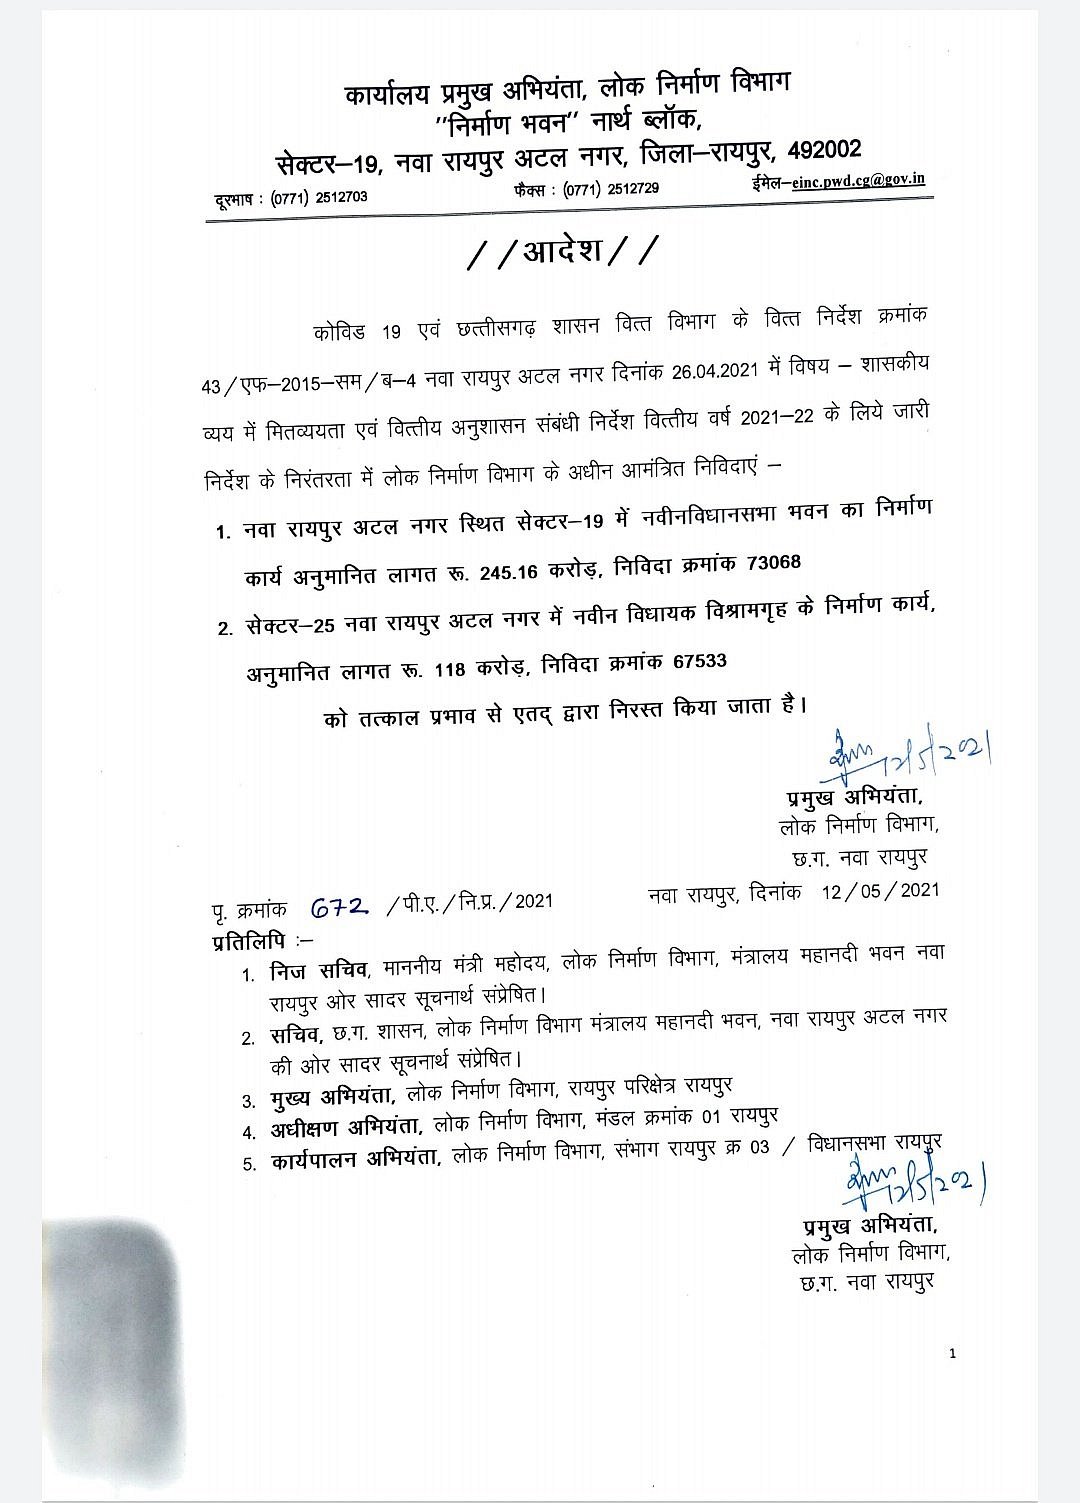 कार्यालय प्रमुख अभियंता, लोक निर्माण विभाग
"निर्माण भवन" नार्थ ब्लॉक,
सेक्टर–19, नवा रायपुर अटल नगर, जिला–रायपुर, 492002
दूरभाष : (0771) 2512703 फैक्स : (0771) 2512729 ईमेल–einc.pwd.cg@gov.in
//आदेश//
कोविड 19 एवं छत्तीसगढ़ शासन वित्त विभाग के वित्त निर्देश क्रमांक
43/एफ–2015–सम/ब–4 नवा रायपुर अटल नगर दिनांक 26.04.2021 में विषय – शासकीय
व्यय में मितव्ययता एवं वित्तीय अनुशासन संबंधी निर्देश वित्तीय वर्ष 2021–22 के लिये जारी
निर्देश के निरंतरता में लोक निर्माण विभाग के अधीन आमंत्रित निविदाएं –
1. नवा रायपुर अटल नगर स्थित सेक्टर–19 में नवीनविधानसभा भवन का निर्माण
कार्य अनुमानित लागत रू. 245.16 करोड़, निविदा क्रमांक 73068
2. सेक्टर–25 नवा रायपुर अटल नगर में नवीन विधायक विश्रामगृह के निर्माण कार्य,
अनुमानित लागत रू. 118 करोड़, निविदा क्रमांक 67533
को तत्काल प्रभाव से एतद् द्वारा निरस्त किया जाता है।
12/5/2021
प्रमुख अभियंता,
लोक निर्माण विभाग,
छ.ग. नवा रायपुर
पृ. क्रमांक 672 /पी.ए./नि.प्र./2021 नवा रायपुर, दिनांक 12/05/2021
प्रतिलिपि :–
1. निज सचिव, माननीय मंत्री महोदय, लोक निर्माण विभाग, मंत्रालय महानदी भवन नवा
रायपुर ओर सादर सूचनार्थ संप्रेषित।
2. सचिव, छ.ग. शासन, लोक निर्माण विभाग मंत्रालय महानदी भवन, नवा रायपुर अटल नगर
की ओर सादर सूचनार्थ संप्रेषित।
3. मुख्य अभियंता, लोक निर्माण विभाग, रायपुर परिक्षेत्र रायपुर
4. अधीक्षण अभियंता, लोक निर्माण विभाग, मंडल क्रमांक 01 रायपुर
5. कार्यपालन अभियंता, लोक निर्माण विभाग, संभाग रायपुर क्र 03 / विधानसभा रायपुर
12/5/2021
प्रमुख अभियंता,
लोक निर्माण विभाग,
छ.ग. नवा रायपुर
1